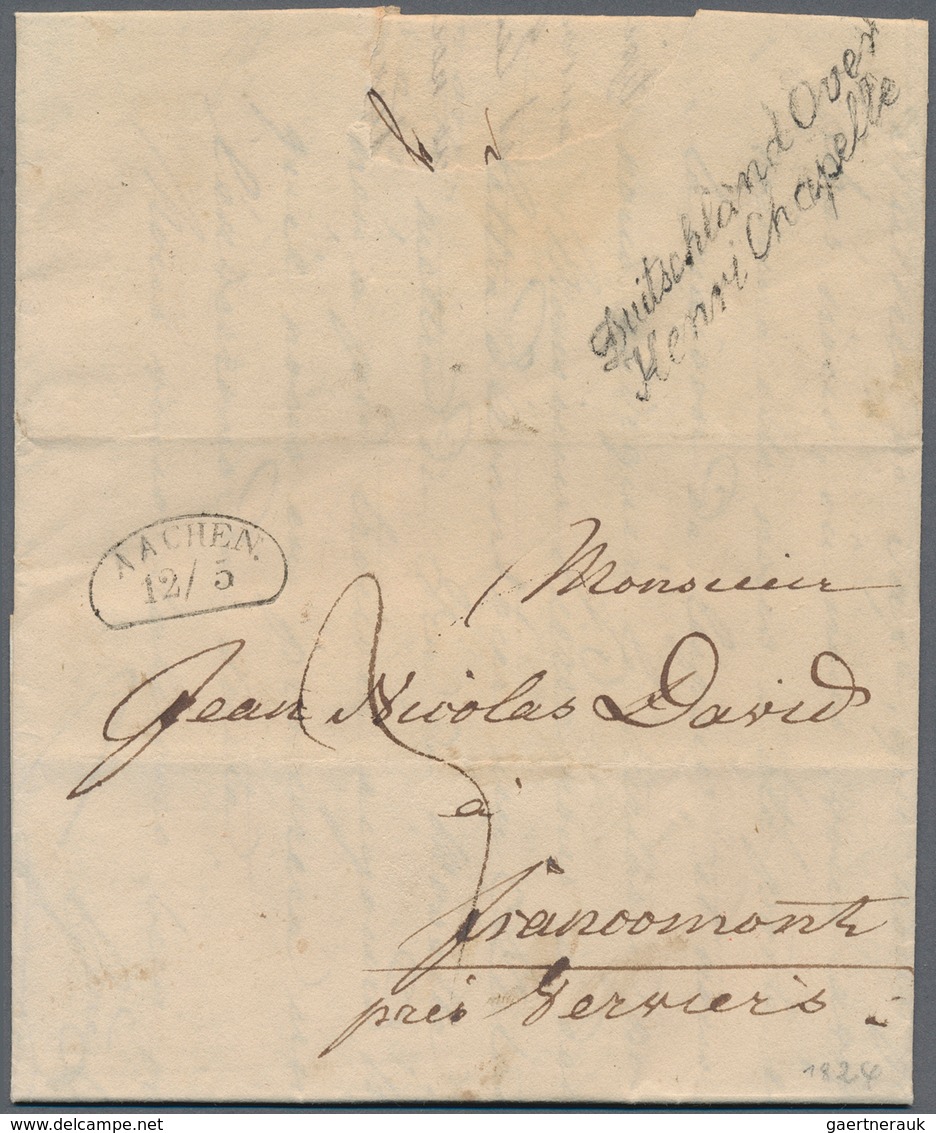 Duitschland Over
Henri Chapelle
AACHEN.
12/5
Monsieur
Jean Nicolas David
à
francomont
près Verviers
1824
gaertnerauk @ delcampe.net